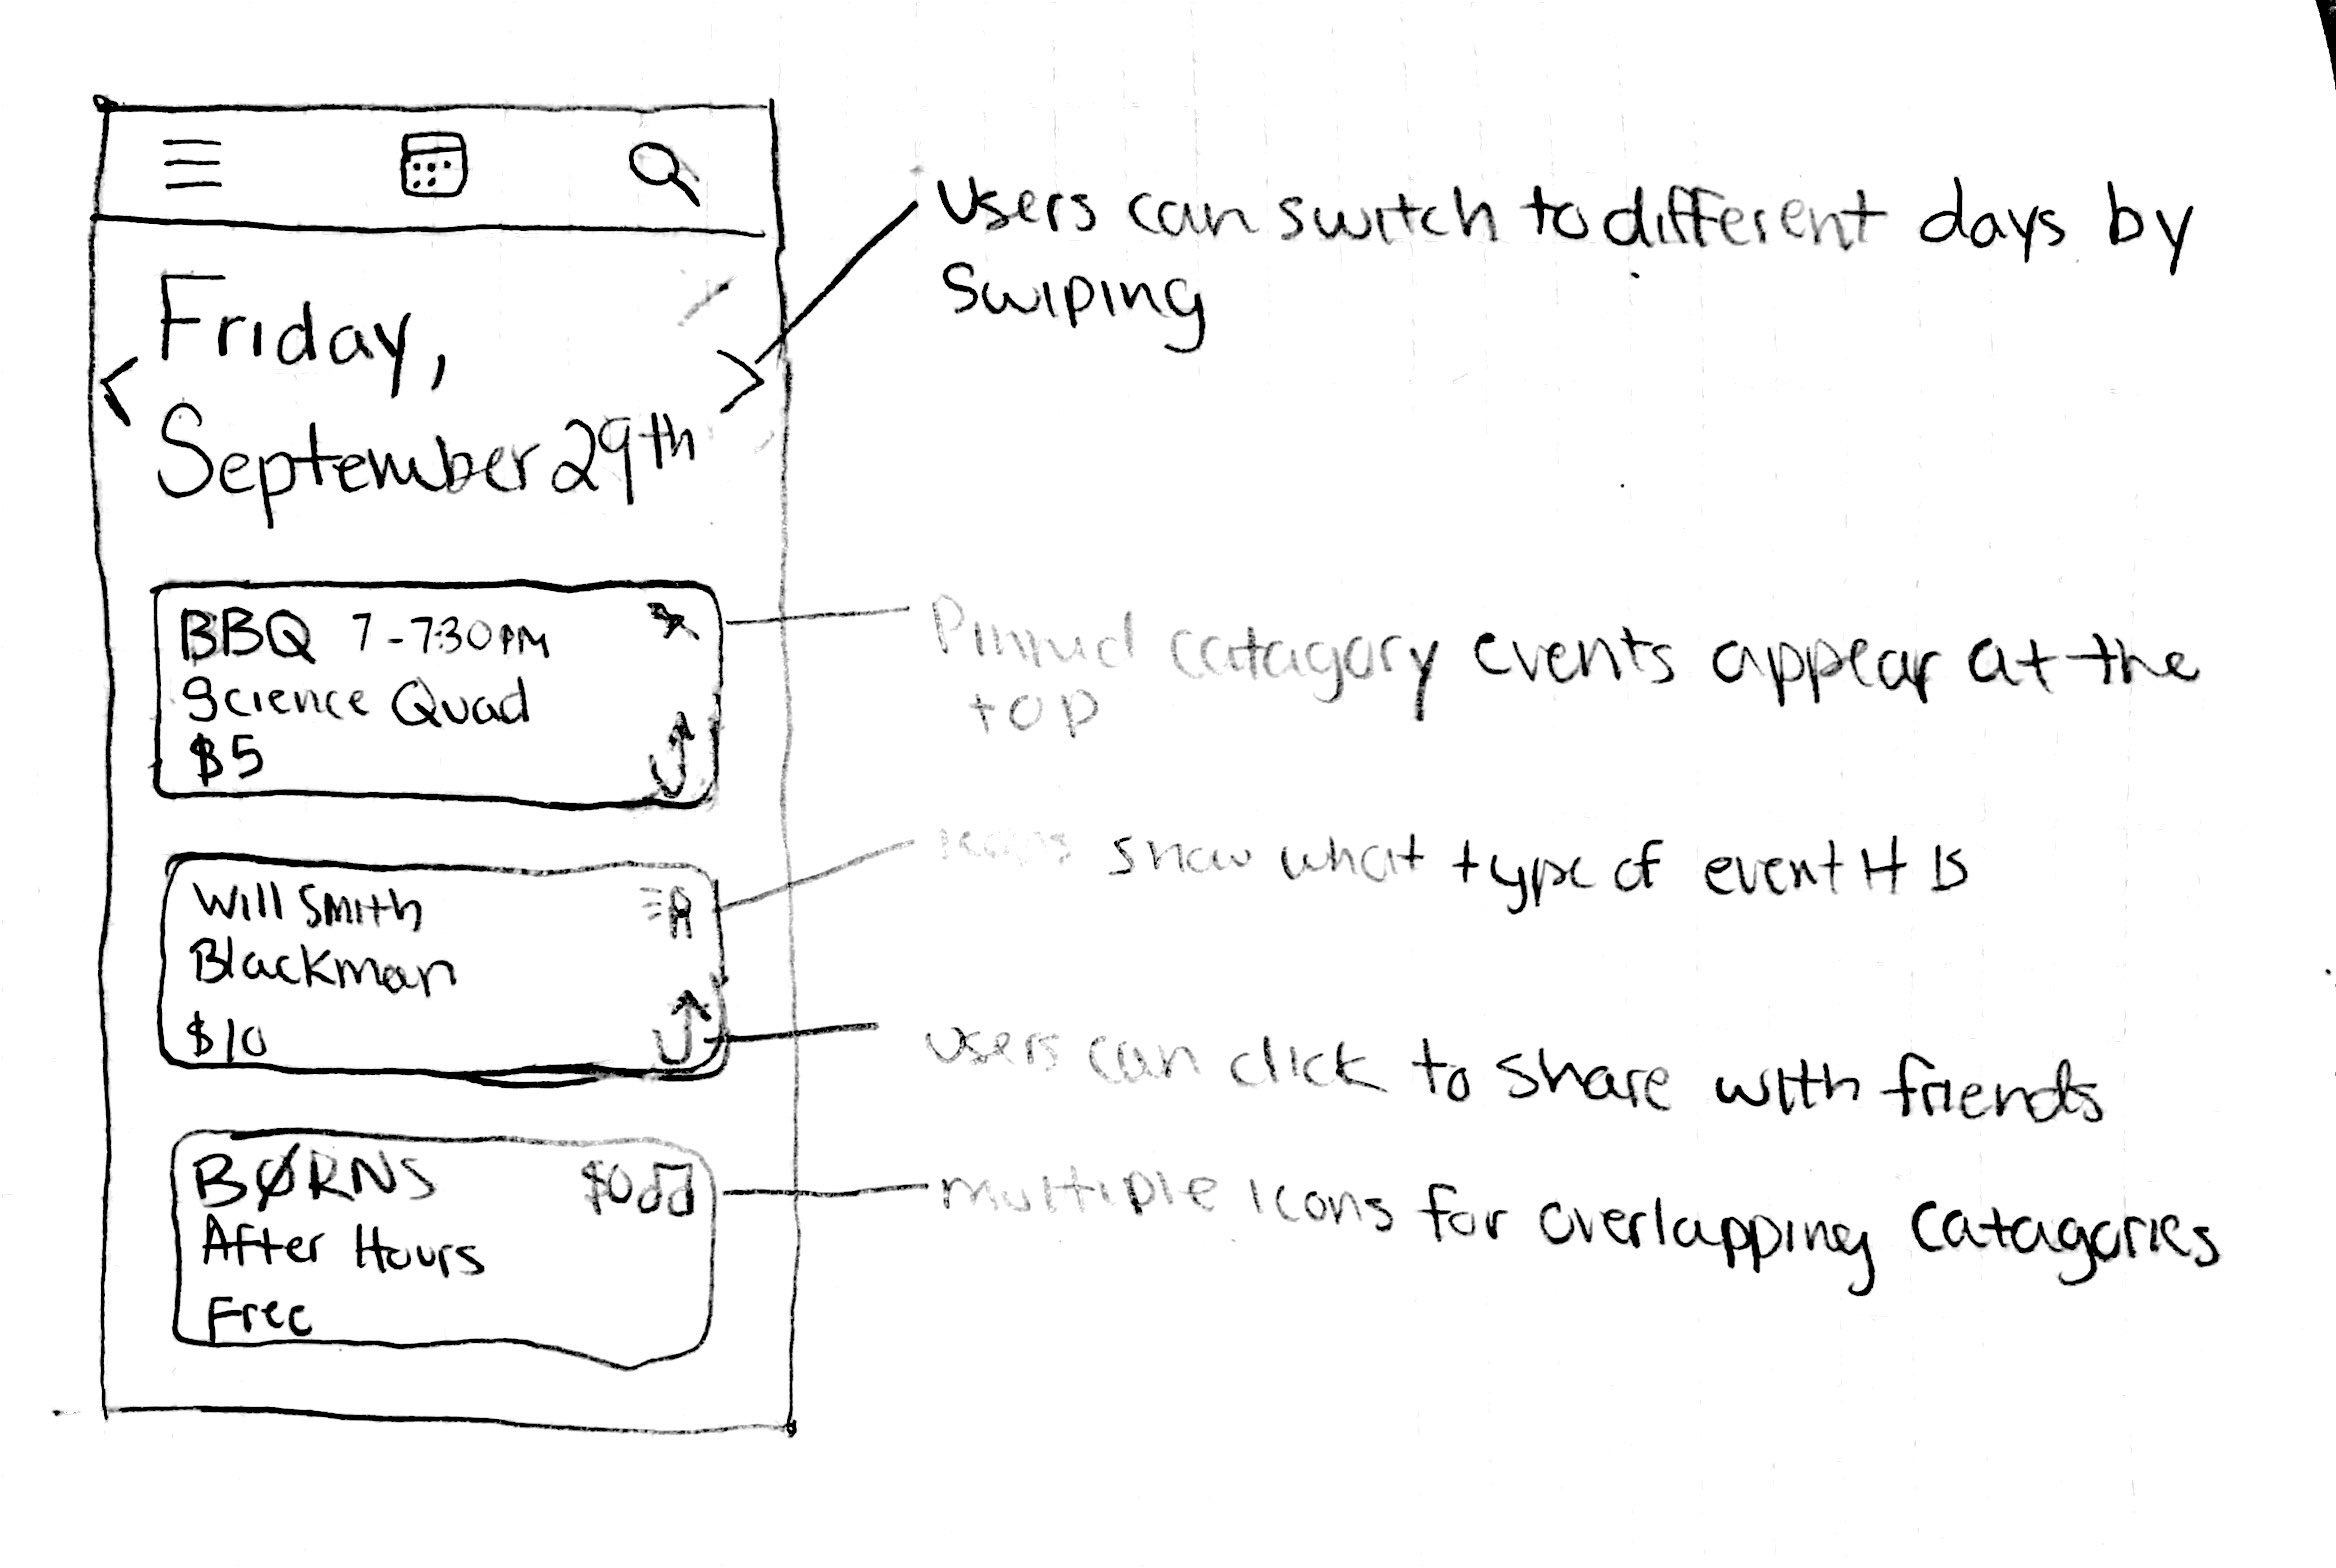 Friday,
September 29th
BBQ 7-7:30PM
Science Quad
$5
Will Smith
Blackman
$10
BØRNS $0
After Hours
Free
Users can switch to different days by
Swiping
Pinned catagory events appear at the
top
icons show what type of event it is
users can click to share with friends
multiple icons for overlapping catagories